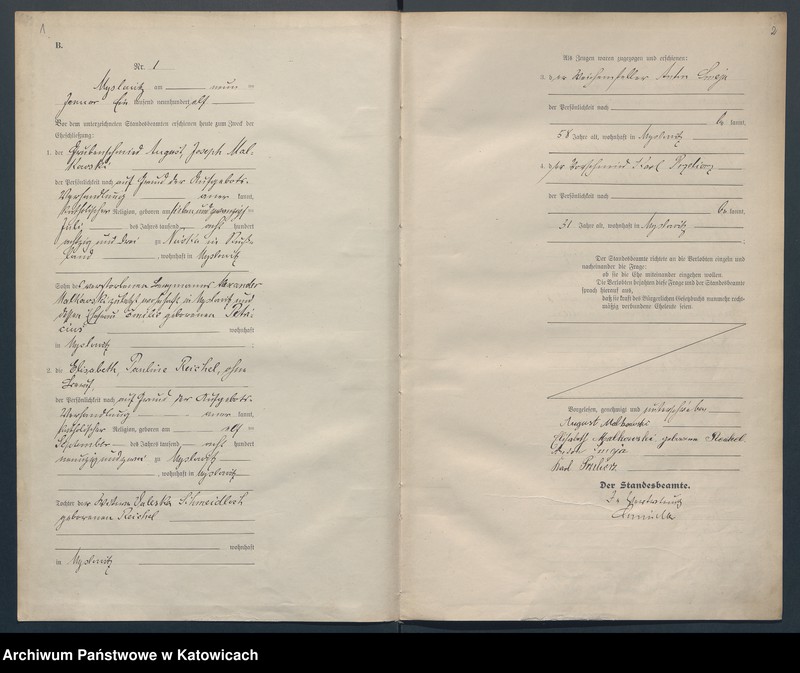 1
B.
Nr. 1
Myslowitz am neun ten
Januar Ein tausend neunhundert elf
Vor dem unterzeichneten Standesbeamten erschienen heute zum Zweck der
Eheschließung:
1. der Grubenschmied August Joseph Mal-
kowski
der Persönlichkeit nach auf Grund der Aufgebots-
Verhandlung aner kannt,
katholischer Religion, geboren am sieben und zwanzigsten
Juli des Jahres tausend acht hundert
achtzig und drei zu in Ruß-
land, wohnhaft in Myslowitz
Sohn des verstorbenen Bergmanns Alexander
Malkowski, zuletzt wohnhaft in Myslowitz und
dessen Ehefrau Emilie geborenen
wohnhaft
in Myslowitz;
2. die Elisabeth Pauline Reichel, ohne
Beruf,
der Persönlichkeit nach auf Grund der Aufgebots-
Verhandlung aner kannt,
katholischer Religion, geboren am elf ten
September des Jahres tausend acht hundert
neunzig und zwei zu Myslowitz
, wohnhaft in Myslowitz
Tochter der Witwe Valeska
geborenen Reichel
wohnhaft
in Myslowitz
2
Als Zeugen waren zugezogen und erschienen:
3. der Weichensteller Anton
der Persönlichkeit nach
be kannt,
58 Jahre alt, wohnhaft in Myslowitz
4. der Karl
der Persönlichkeit nach
be kannt,
51 Jahre alt, wohnhaft in Myslowitz
Der Standesbeamte richtete an die Verlobten einzeln und
nacheinander die Frage:
ob sie die Ehe miteinander eingehen wollen.
Die Verlobten bejahten diese Frage und der Standesbeamte
sprach hierauf aus,
daß sie kraft des Bürgerlichen Gesetzbuchs nunmehr recht-
mäßig verbundene Eheleute seien.
Vorgelesen, genehmigt und unterschrieben
August Malkowski
Elisabeth Malkowski geborene Reichel
Anton
Karl
Der Standesbeamte.
In Vertretung
Archiwum Państwowe w Katowicach